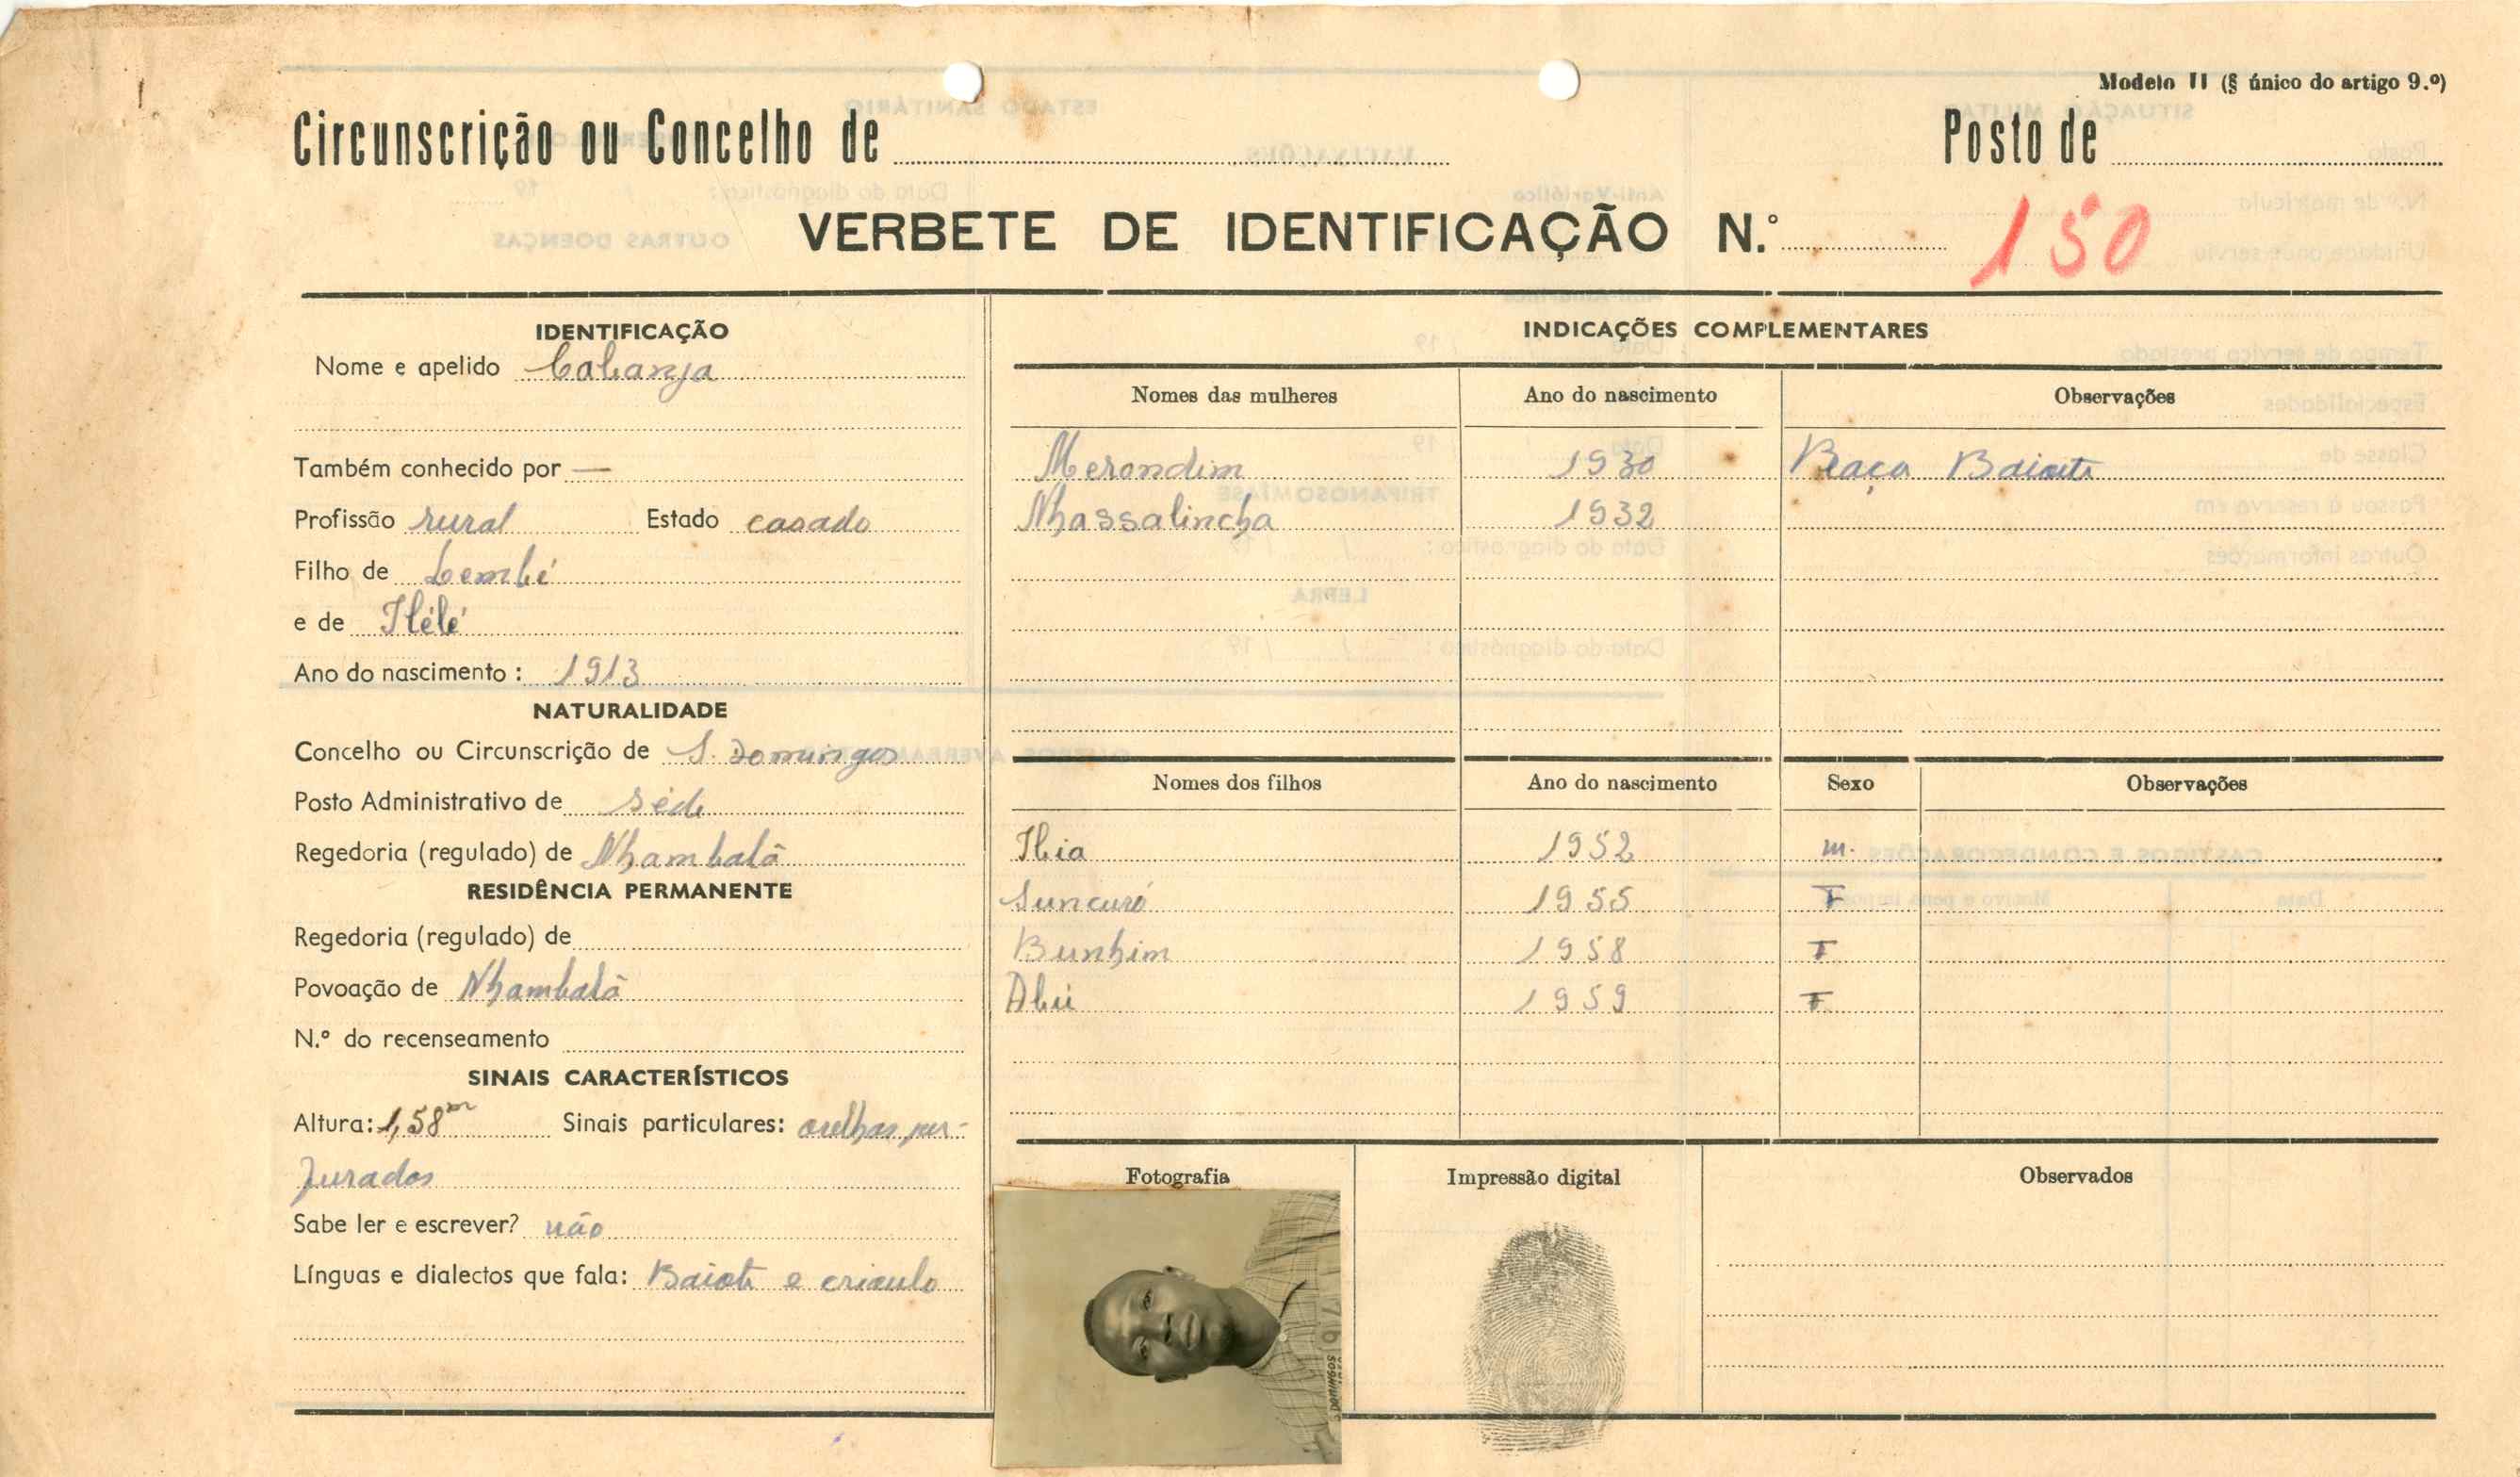 Modelo II (§ único do artigo 9.º)
Circunscrição ou Concelho de Posto de
VERBETE DE IDENTIFICAÇÃO N.º 150
IDENTIFICAÇÃO
Nome e apelido Cabanja
Também conhecido por —
Profissão rural Estado casado
Filho de Lembé
e de Ilélé
Ano do nascimento: 1913
NATURALIDADE
Concelho ou Circunscrição de S. Domingos
Posto Administrativo de séde
Regedoria (regulado) de Nhambalã
RESIDÊNCIA PERMANENTE
Regedoria (regulado) de
Povoação de Nhambalã
N.º do recenseamento
SINAIS CARACTERÍSTICOS
Altura: 1,58m Sinais particulares: orelhas per-
furados
Sabe ler e escrever? não
Línguas e dialectos que fala: Baiote e crioulo
INDICAÇÕES COMPLEMENTARES
Nomes das mulheres Ano do nascimento Observações
Merondim 1930 Raça Baiote
Nhassalincha 1932
Nomes dos filhos Ano do nascimento Sexo Observações
Ibia 1952 m.
Suncuró 1955 F
Bunhim 1958 F
Abú 1959 F
Fotografia Impressão digital Observados